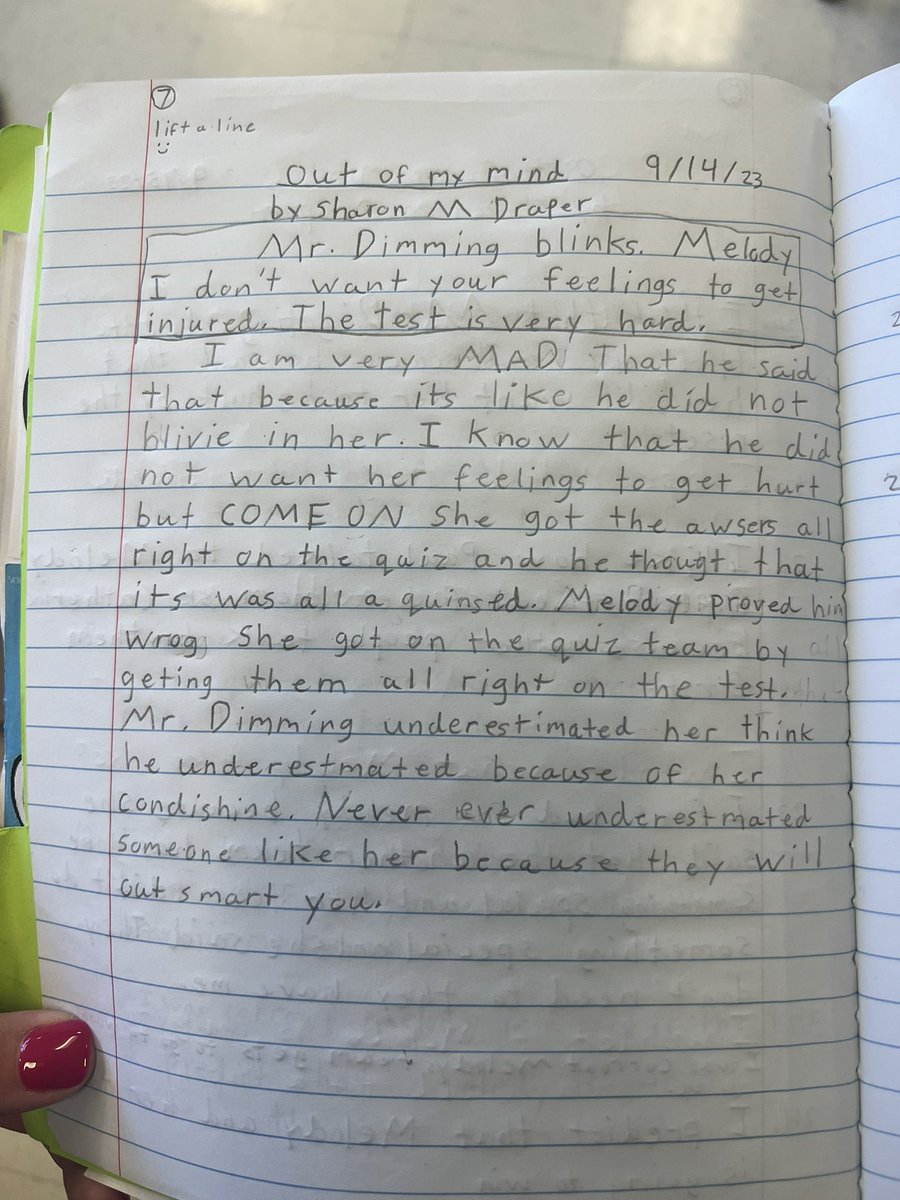 7
lift a line
Out of my mind 9/14/23
by Sharon M Draper
Mr. Dimming blinks. Melody
I don't want your feelings to get
injured. The test is very hard.
I am very MAD That he said
that because its like he did not
blivie in her. I know that he did
not want her feelings to get hurt
but COME ON she got the awsers all
right on the quiz and he thougt that
its was all a quinsed. Melody proved him
wrog she got on the quiz team by
geting them all right on the test.
Mr. Dimming underestimated her think
he underestmated because of her
condishine. Never ever underestmated
someone like her because they will
out smart you.
2
2